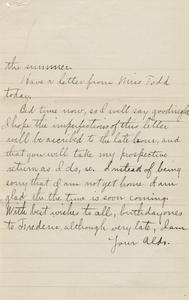 the summer.
Have a letter from Miss Todd
today.
Bed time now, so I will say goodnight.
I hope the imperfections of this letter
will be ascribed to the late hour, and
that you will take my prospective
return as I do, i.e. instead of being
sorry that I am not yet home I am
glad the time is soon coming.
With best wishes to all, birthday ones
to Frederic, although very late, I am
Your